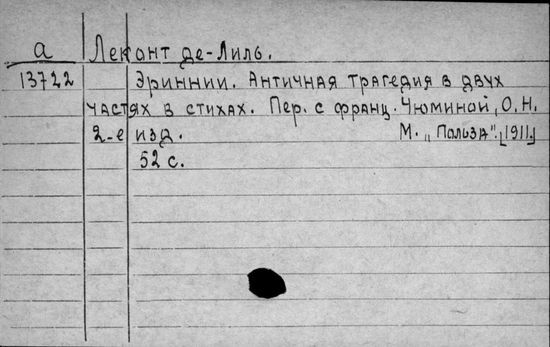 а Леконт де-Лиль.
13722 Эриннии. Античная трагедия в двух
частях в стихах. Пер. с франц. Чюминой, О.Н.
2-е изд. М. „Польза". [1911]
52 с.